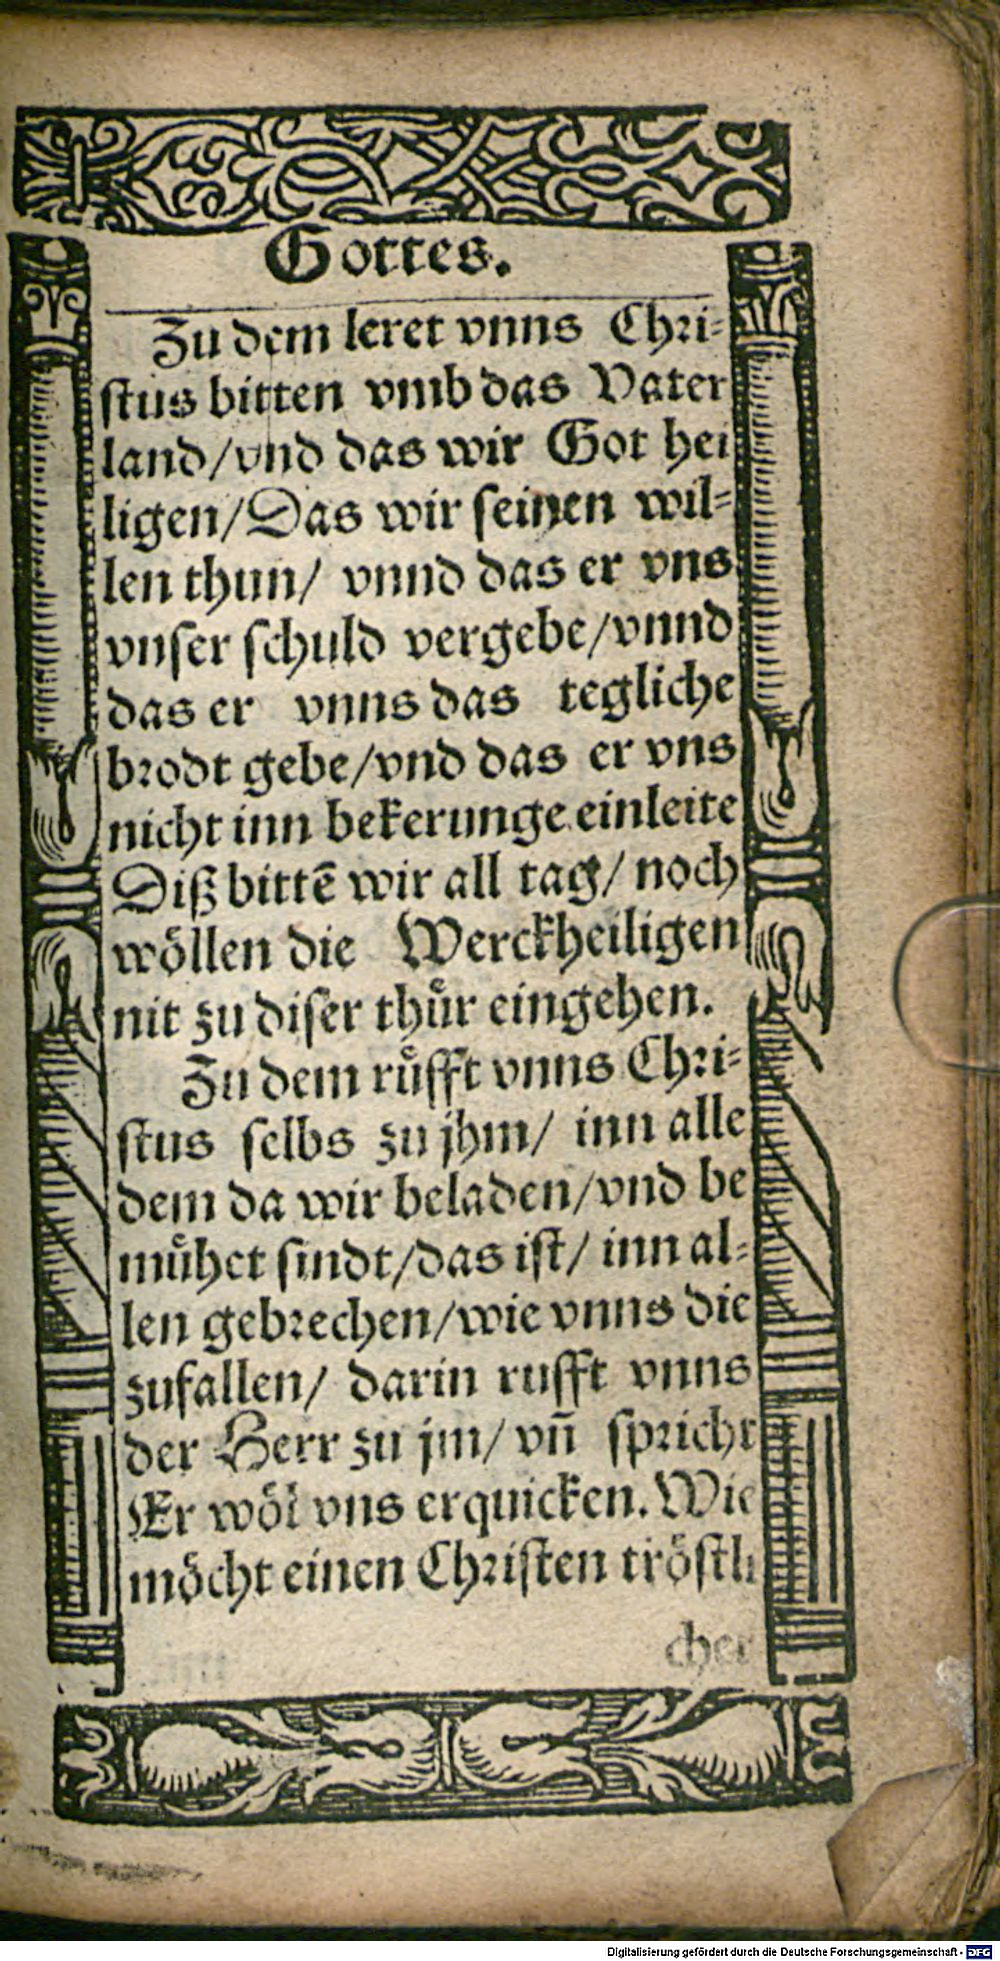 Gottes.
Zu dem leret vnns Chri-
stus bitten vmb das Vater
land/vnd das wir Got hei
ligen/Das wir seinen wil-
len thun/ vnnd das er vns
vnser schuld vergebe/vnnd
das er vnns das tegliche
brodt gebe/vnd das er vns
nicht inn bekerunge einleite
Diß bittē wir all tag/ noch
wöllen die Werckheiligen
nit zu diser thuͤr eingehen.
Zu dem ruͤfft vnns Chri-
stus selbs zu jhm/ inn alle
dem da wir beladen/vnd be
muͤhet sindt/das ist/ inn al-
len gebrechen/wie vnns die
zufallen/ darin rufft vnns
der Herr zu jm/ vn̄ spricht
Er wöl vns erquicken. Wie
möcht einen Christen tröstli
cher
Digitalisierung gefördert durch die Deutsche Forschungsgemeinschaft - DFG